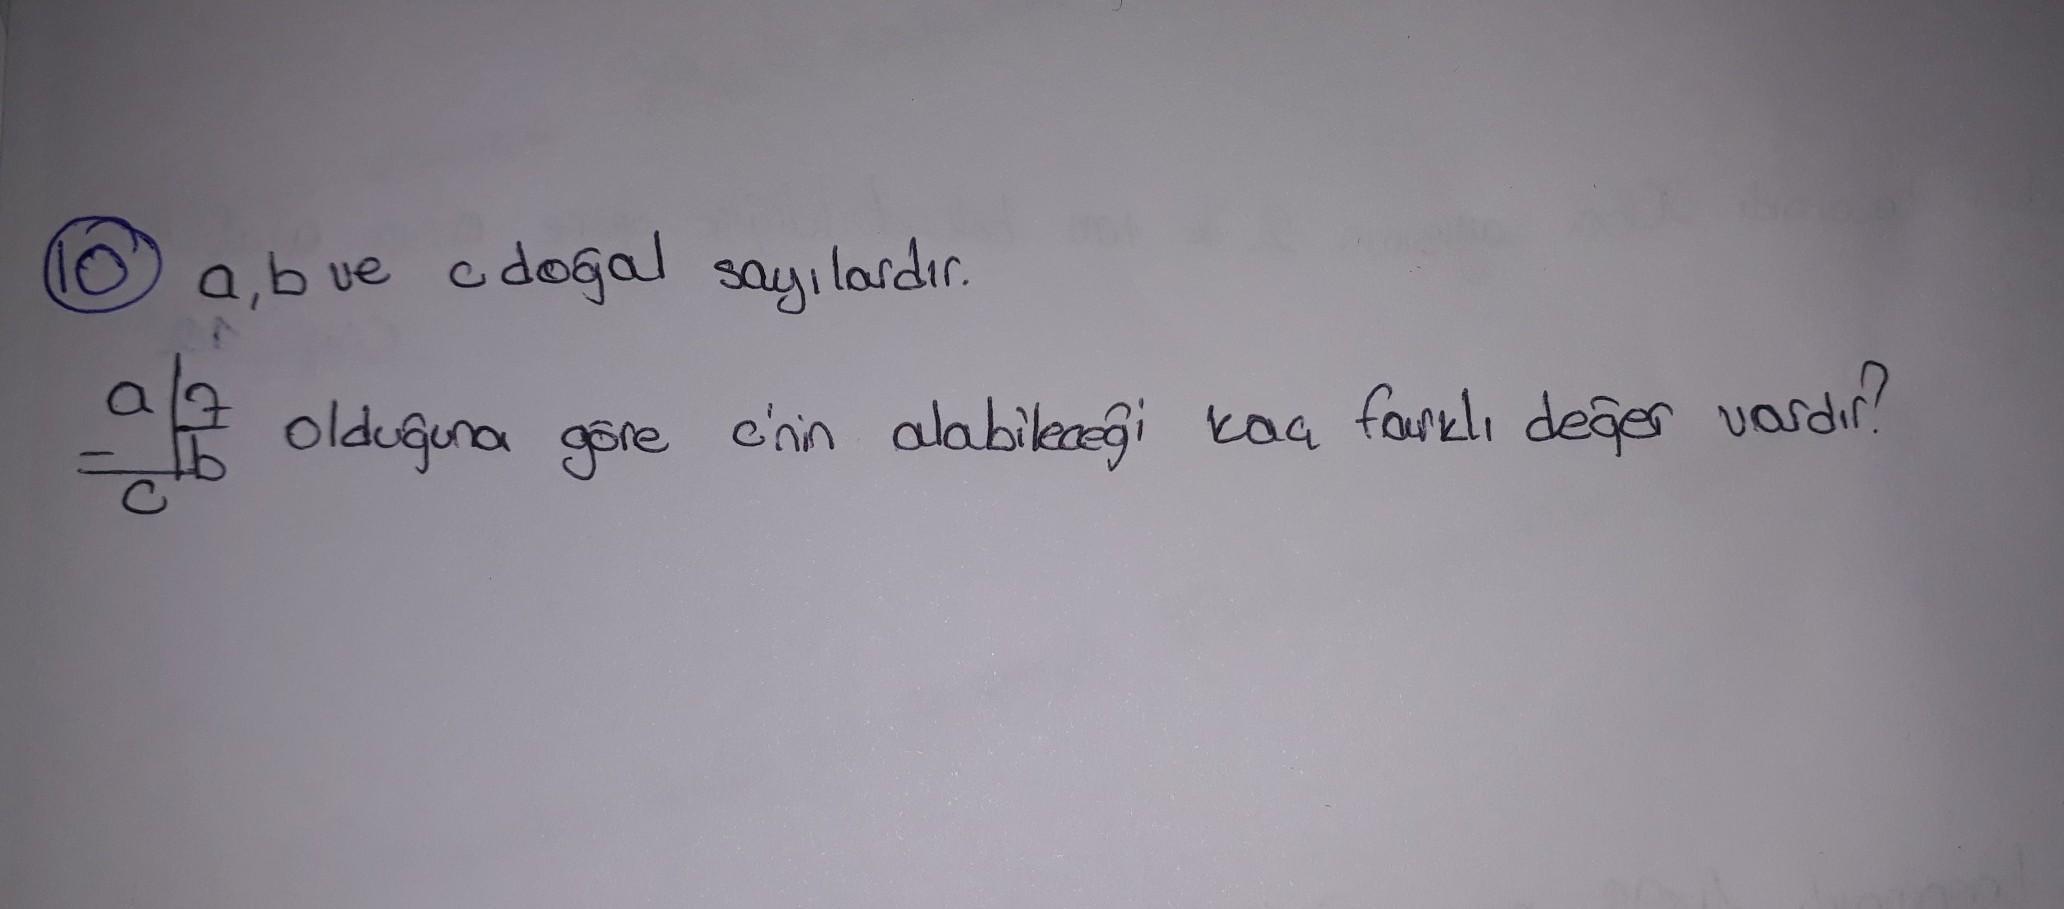 10 a, b ve c doğal sayılardır.
a 7
b olduğuna göre c'nin alabileceği kaç farklı değer vardır?
-
c